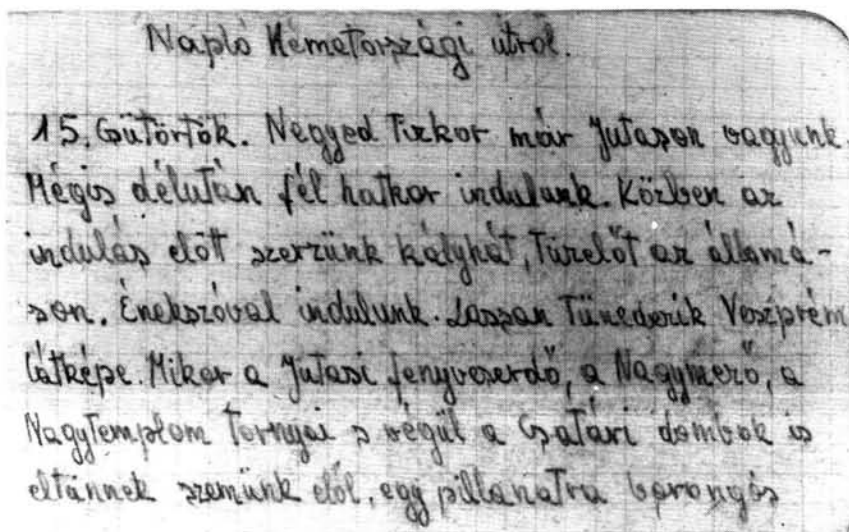 Napló Németországi útról.
15. Csütörtök. Negyed tizkor már Jutason vagyunk.
Mégis délután fél hatkor indulunk. Közben az
indulás előtt szerzünk kályhát, tüzelőt az állomá-
son. Énekszóval indulunk. Lassan tünedezik Veszprém
látképe. Mikor a Jutasi fenyveserdő, a Nagymező, a
Nagytemplom tornyai s végül a Csatári dombok is
eltünnek szemünk elől, egy pillanatra borongós